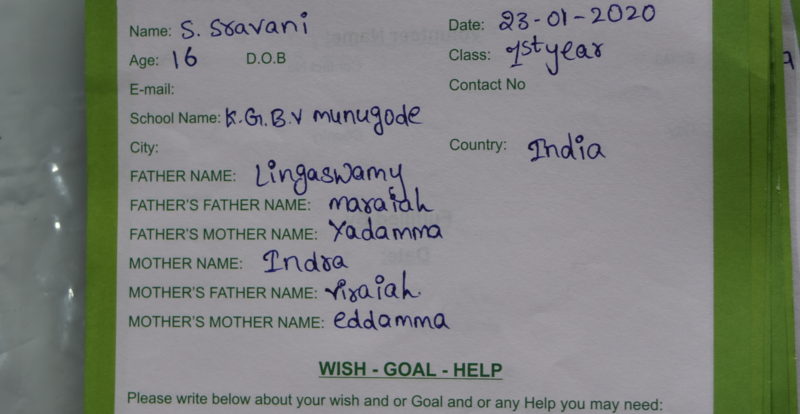 Name: S. Sravani Date: 23-01-2020
Age: 16 D.O.B Class: 1st year
E-mail: Contact No
School Name: K.G.B.V munugode
City: Country: India
FATHER NAME: Lingaswamy
FATHER'S FATHER NAME: maraiah
FATHER'S MOTHER NAME: Yadamma
MOTHER NAME: Indra
MOTHER'S FATHER NAME: Viraiah.
MOTHER'S MOTHER NAME: eddamma
WISH - GOAL - HELP
Please write below about your wish and or Goal and or any Help you may need: